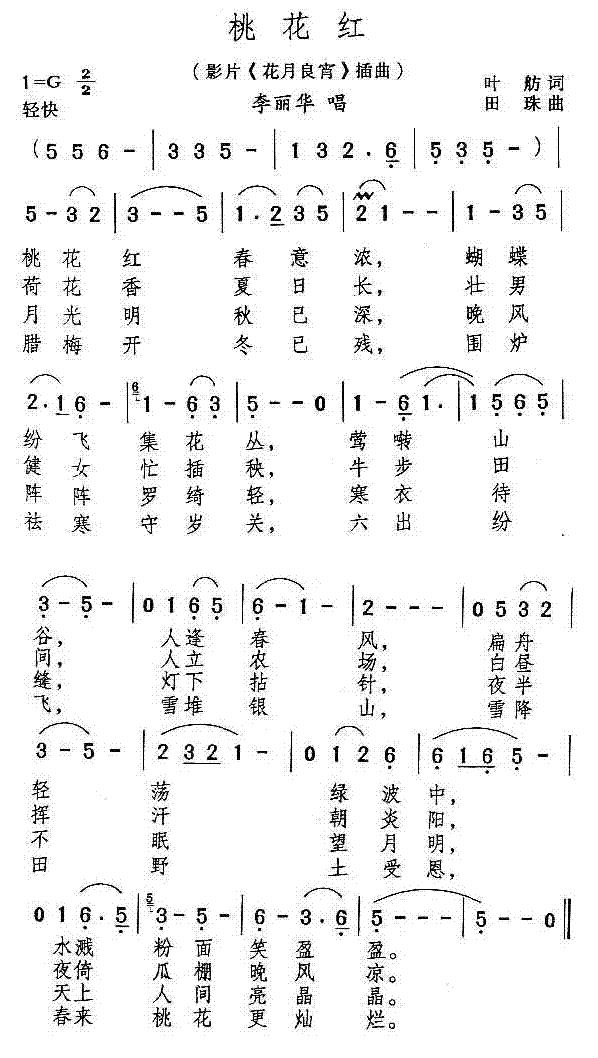 桃花红
(影片《花月良宵》插曲)
1=G 2/2
叶舫词
轻快
李丽华 唱
田珠曲
(5 5 6 - | 3 3 5 - | 1 3 2 . 6 | 5 3 5 - ) |
5 - 3 2 | 3 - - 5 | 1 . 2 3 5 | 2 1 - - | 1 - 3 5 |
桃花红 春意浓, 蝴蝶
荷花香 夏日长, 壮男
月光明 秋已深, 晚风
腊梅开 冬已残, 围炉
2 . 1 6 - | 6 1 - 6 3 | 5 - - 0 | 1 - 6 1 . | 1 5 6 5 |
纷飞 集花丛, 莺啭 山
健女 忙插秧, 牛步 田
阵阵 罗绮轻, 寒衣 待
祛寒 守岁关, 六出 纷
3 - 5 - | 0 1 6 5 | 6 - 1 - | 2 - - - | 0 5 3 2 |
谷, 人逢春 风, 扁舟
间, 人立农 场, 白昼
缝, 灯下拈 针, 夜半
飞, 雪堆银 山, 雪降
3 - 5 - | 2 3 2 1 - | 0 1 2 6 | 6 1 6 5 - |
轻 荡 绿波中,
挥 汗 朝炎阳,
不 眠 望月明,
田 野 土受恩,
0 1 6 . 5 | 5 3 - 5 - | 6 - 3 . 6 | 5 - - - | 5 - - 0 ‖
水溅 粉面 笑盈 盈。
夜倚 瓜棚 晚风 凉。
天上 人间 亮晶 晶。
春来 桃花 更灿 烂。